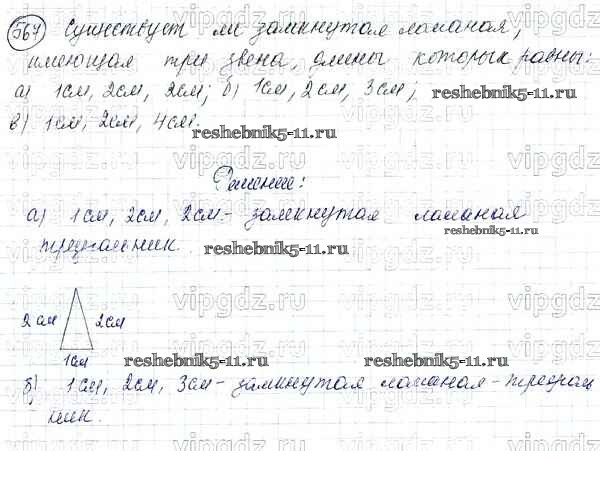 567 Существует ли замкнутая ломаная,
имеющая три звена, длины которых равны:
а) 1см, 2см, 2см; б) 1см, 2см, 3см;
в) 1см, 2см, 4см.
reshebnik5-11.ru
reshebnik5-11.ru
Решение:
а) 1см, 2см, 2см - замкнутая ломаная
треугольник.
reshebnik5-11.ru
reshebnik5-11.ru
2см 2см
1см
reshebnik5-11.ru reshebnik5-11.ru
б) 1см, 2см, 3см - замкнутая ломаная - треуголь
ник.
vipgdz.ru